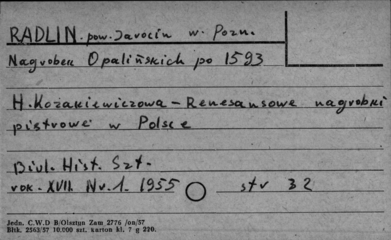 RADLIN. pow. Jarocin w. Pozn.
Nagrobek Opalińskich po 1593
H. Kozakiewiczowa - Renesansowe nagrobki
piętrowe w Polsce
Biul. Hist. Szt.
rok. XVII. Nr. 1. 1955 str 32
Jedn. C.W.D B/Olsztyn Zam 2776 /on/57
Bltk. 2563/57 10.000 szt. karton kl. 7 g 220.